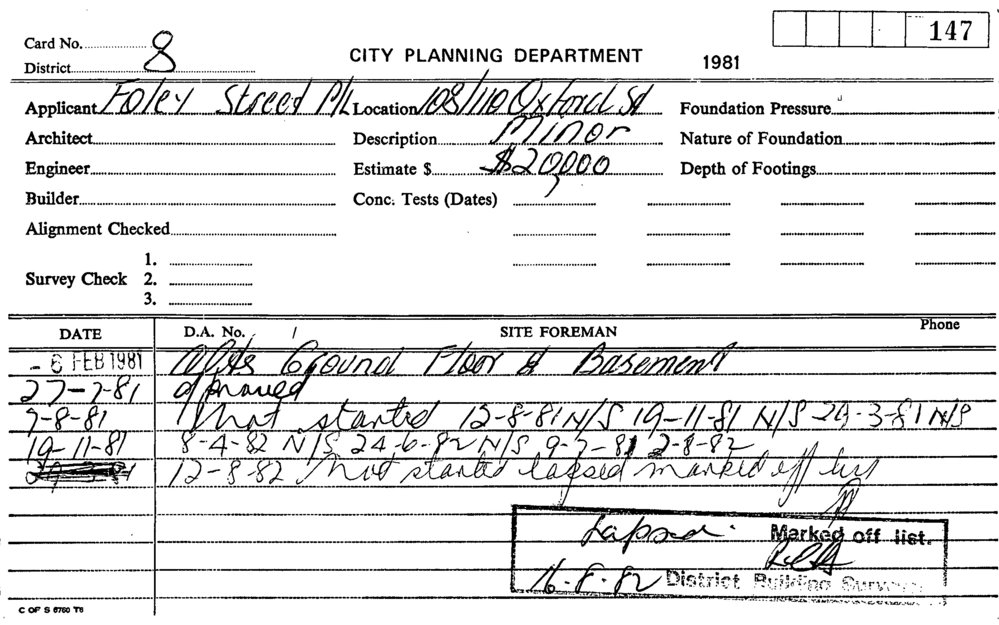 147
Card No.
District 8
CITY PLANNING DEPARTMENT 1981
Applicant Foley Street P/L Location 108/110 Oxford St Foundation Pressure
Architect Description Minor Nature of Foundation
Engineer Estimate $ $20,000 Depth of Footings
Builder Conc. Tests (Dates)
Alignment Checked
1.
Survey Check 2.
3.
DATE D.A. No. SITE FOREMAN Phone
- 6 FEB 1981 Alts Ground Floor & Basement
27-7-81 approved
7-8-81 not started 12-8-81 N/S 19-11-81 N/S 29-3-81 N/S
19-11-81 8-4-82 N/S 24-6-82 N/S 9-7-82 2-8-82
12-8-82 not started lapsed marked off list
Lapsed. Marked off list.
16-8-82 District Building Surveyor
C OF S 6760 T6